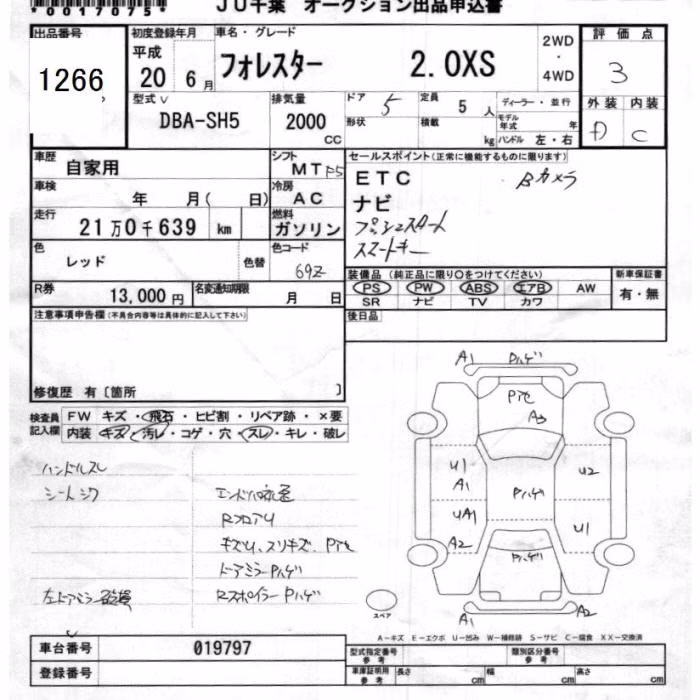 *0017075*
JU千葉 オークション出品申込書
出品番号
1266
初度登録年月
平成
20 6月
車名・グレード
フォレスター 2.0XS
2WD
・
4WD
評価点
3
外装 内装
D C
型式
DBA-SH5
排気量
2000
CC
ドア 5
形状
定員 5 人
積載 kg
ディーラー・並行
モデル年式 年
ハンドル 左・右
車歴
自家用
シフト
MT F5
車検 年 月( 日)
冷房
AC
走行
21万0千639 km
燃料
ガソリン
色
レッド
色替
色コード
69Z
R券
13,000円
名変通知期限
月 日
セールスポイント(正常に機能するものに限ります)
ETC Bカメラ
ナビ
プッシュスタート
スマートキー
装備品(純正品に限り○をつけてください)
PS PW ABS エアB AW
SR ナビ TV カワ
新車保証書
有・無
後日品
注意事項申告欄(不具合内容等は具体的に記入して下さい)
修復歴 有〔箇所 〕
検査員
記入欄
FW キズ・飛石・ヒビ割・リペア跡・×要
内装 キズ・汚レ・コゲ・穴・スレ・キレ・破レ
ハンドルスレ
シートシワ
RフロアU
キズU、スリキズ、P
ドアミラーPハゲ
左ドアミラー
RスポイラーPハゲ
A1 Pハゲ
A3
U1
A1
U2
Pハゲ
UA1
A2
U1
Pハゲ
A1
A2
スペア
A－キズ E－エクボ U－凹み W－補修跡 S－サビ C－腐食 XX－交換済
車台番号 019797
登録番号
型式指定番号
参考
類別区分番号
参考
車庫証明用
参考
長さ cm
幅 cm
高さ cm